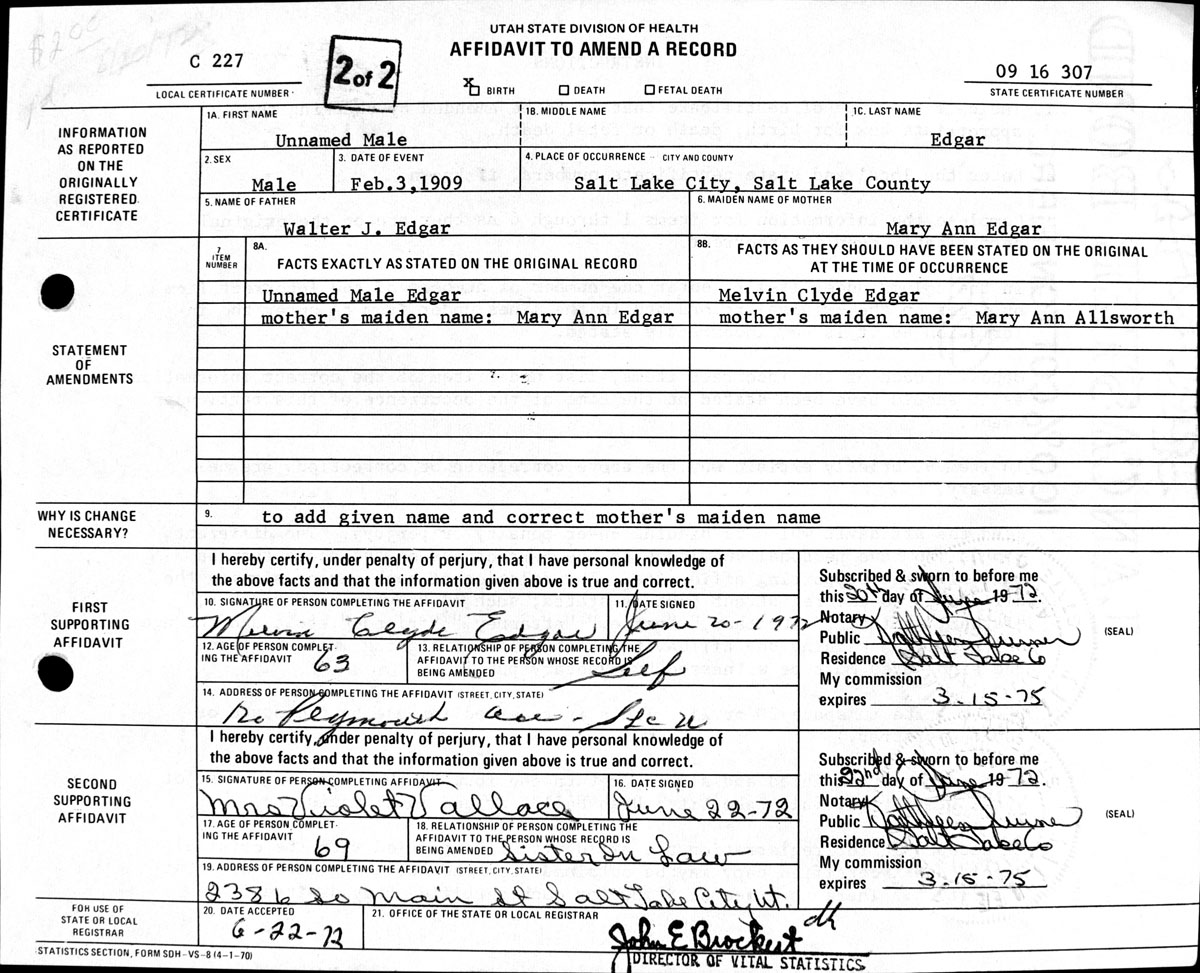 $2.00
UTAH STATE DIVISION OF HEALTH
AFFIDAVIT TO AMEND A RECORD
C 227
LOCAL CERTIFICATE NUMBER
2 of 2
X BIRTH DEATH FETAL DEATH
09 16 307
STATE CERTIFICATE NUMBER
INFORMATION AS REPORTED ON THE ORIGINALLY REGISTERED CERTIFICATE
1A. FIRST NAME 1B. MIDDLE NAME 1C. LAST NAME
Unnamed Male Edgar
2. SEX 3. DATE OF EVENT 4. PLACE OF OCCURRENCE - CITY AND COUNTY
Male Feb.3,1909 Salt Lake City, Salt Lake County
5. NAME OF FATHER 6. MAIDEN NAME OF MOTHER
Walter J. Edgar Mary Ann Edgar
STATEMENT OF AMENDMENTS
7 ITEM NUMBER
8A. FACTS EXACTLY AS STATED ON THE ORIGINAL RECORD
8B. FACTS AS THEY SHOULD HAVE BEEN STATED ON THE ORIGINAL
AT THE TIME OF OCCURRENCE
Unnamed Male Edgar Melvin Clyde Edgar
mother's maiden name: Mary Ann Edgar mother's maiden name: Mary Ann Allsworth
WHY IS CHANGE NECESSARY?
9. to add given name and correct mother's maiden name
FIRST SUPPORTING AFFIDAVIT
I hereby certify, under penalty of perjury, that I have personal knowledge of
the above facts and that the information given above is true and correct.
10. SIGNATURE OF PERSON COMPLETING THE AFFIDAVIT 11. DATE SIGNED
Melvin Clyde Edgar June 20-1972
12. AGE OF PERSON COMPLETING THE AFFIDAVIT 63
13. RELATIONSHIP OF PERSON COMPLETING THE
AFFIDAVIT TO THE PERSON WHOSE RECORD IS
BEING AMENDED Self
14. ADDRESS OF PERSON COMPLETING THE AFFIDAVIT (STREET, CITY, STATE)
Plymouth Ave -
Subscribed & sworn to before me
this 20th day of June 1972.
Notary
Public Kathleen
Residence Salt Lake Co
My commission
expires 3-15-75
(SEAL)
SECOND SUPPORTING AFFIDAVIT
I hereby certify, under penalty of perjury, that I have personal knowledge of
the above facts and that the information given above is true and correct.
15. SIGNATURE OF PERSON COMPLETING AFFIDAVIT 16. DATE SIGNED
Mrs Violet Wallace June 22-72
17. AGE OF PERSON COMPLETING THE AFFIDAVIT 69
18. RELATIONSHIP OF PERSON COMPLETING THE
AFFIDAVIT TO THE PERSON WHOSE RECORD IS
BEING AMENDED Sister In Law
19. ADDRESS OF PERSON COMPLETING THE AFFIDAVIT (STREET, CITY, STATE)
2386 So Main St Salt Lake City Ut.
Subscribed & sworn to before me
this 22nd day of June 1972.
Notary
Public Kathleen
Residence Salt Lake Co
My commission
expires 3-15-75
(SEAL)
FOR USE OF STATE OR LOCAL REGISTRAR
20. DATE ACCEPTED 21. OFFICE OF THE STATE OR LOCAL REGISTRAR
6-22-72 John E Brockert dh
DIRECTOR OF VITAL STATISTICS
STATISTICS SECTION, FORM SDH-VS-8 (4-1-70)